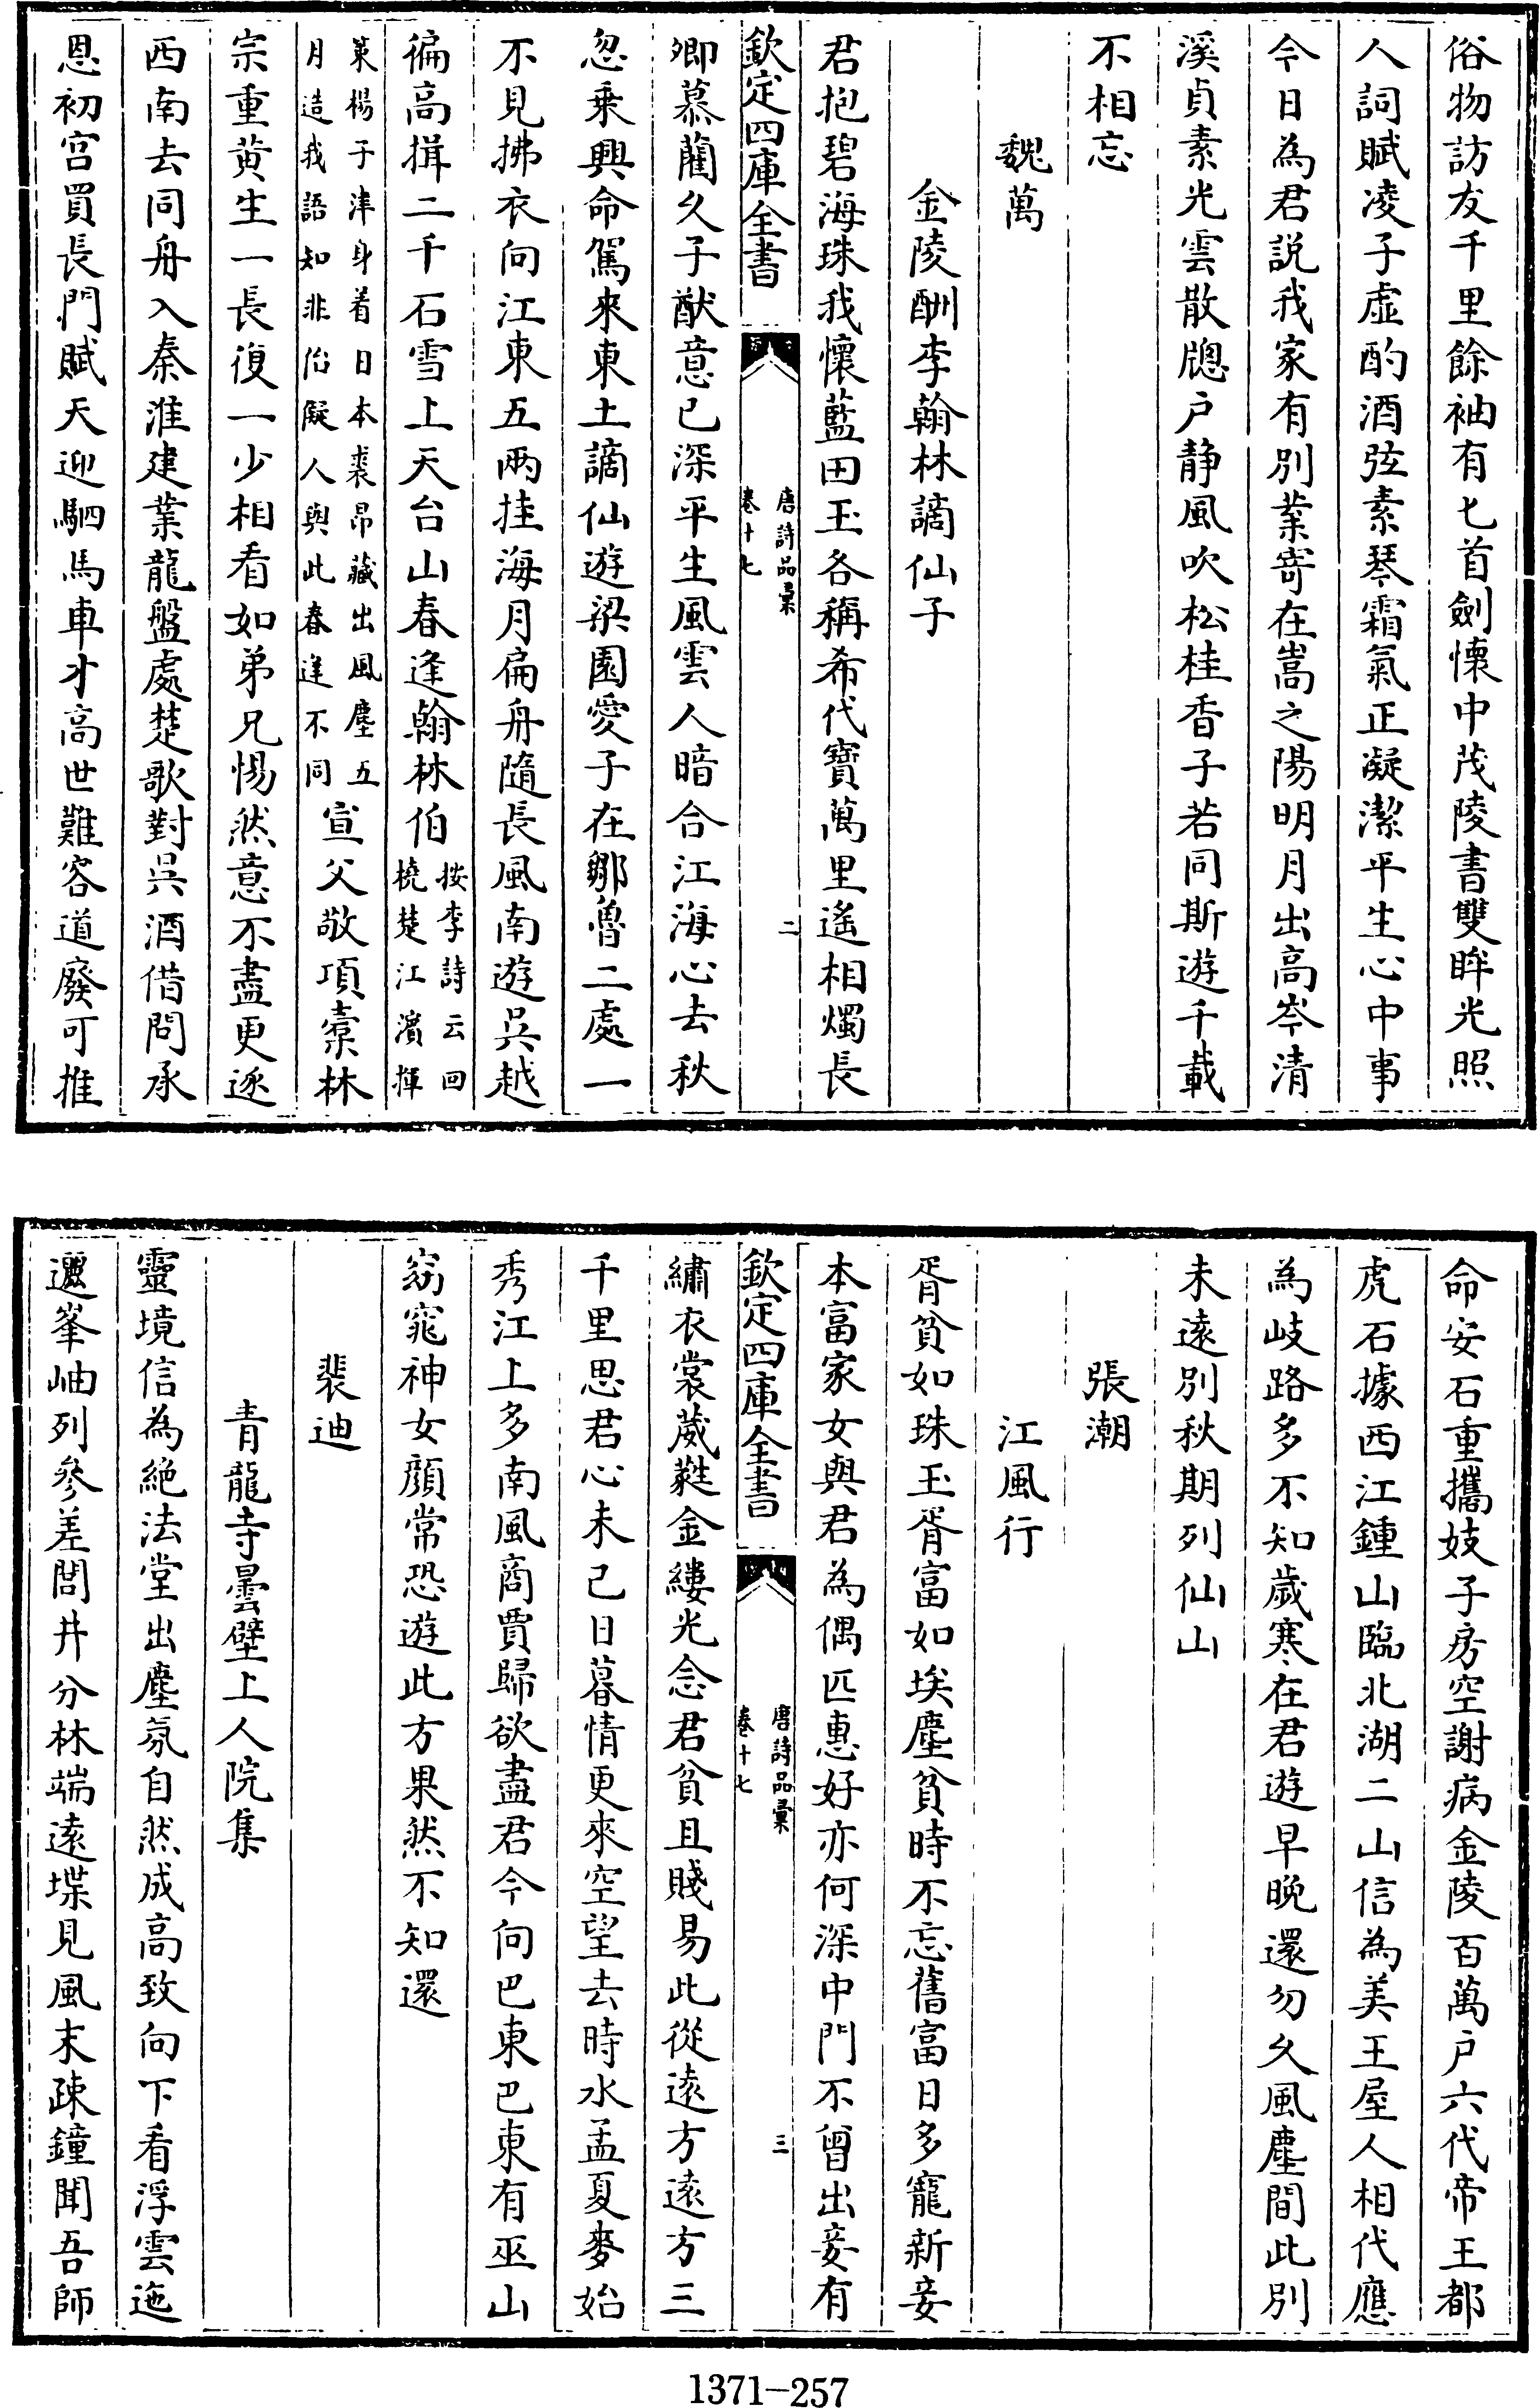 俗物訪友千里餘袖有七首劍懷中茂陵書雙眸光照
人詞賦凌子虛酌酒弦素琴霜氣正凝潔平生心中事
今日為君説我家有別業寄在嵩之陽明月出高岑清
溪貞素光雲散牕户静風吹松桂香子若同斯遊千載
不相忘
魏萬
金陵酬李翰林謫仙子
君抱碧海珠我懷藍田玉各稱希代寶萬里遙相燭長
欽定四庫全書
唐詩品彙
卷十七
二
卿慕藺久子猷意已深平生風雲人暗合江海心去秋
忽乗興命駕來東土謫仙遊梁園愛子在鄒魯二處一
不見拂衣向江東五兩挂海月扁舟隨長風南遊吳越
徧高揖二千石雪上天台山春逢翰林伯
按李詩云回
橈楚江濱揮
策楊子津身着日本裘昂藏出風塵五
月造我語知非佁儗人與此春逢不同
宣父敬項橐林
宗重黄生一長復一少相看如弟兄惕然意不盡更逐
西南去同舟入秦淮建業龍盤處楚歌對吳酒借問承
恩初宫買長門賦天迎駟馬車才高世難容道廢可推
命安石重攜妓子房空謝病金陵百萬户六代帝王都
虎石據西江鍾山臨北湖二山信為美王屋人相代應
為岐路多不知歲寒在君遊早晚還勿久風塵間此別
未遠別秋期列仙山
張潮
江風行
胥貧如珠玉胥富如埃塵貧時不忘舊富日多寵新妾
本富家女與君為偶匹惠好亦何深中門不曾出妾有
欽定四庫全書
唐詩品彙
卷十七
三
繡衣裳葳蕤金縷光念君貧且賤易此從遠方遠方三
千里思君心未已日暮情更來空望去時水孟夏麥始
秀江上多南風商賈歸欲盡君今向巴東巴東有巫山
窈窕神女顔常恐遊此方果然不知還
裴迪
青龍寺曇壁上人院集
靈境信為絶法堂出塵氛自然成高致向下看浮雲迤
邐峯岫列參差閭井分林端遠堞見風末疎鐘聞吾師
1371-257